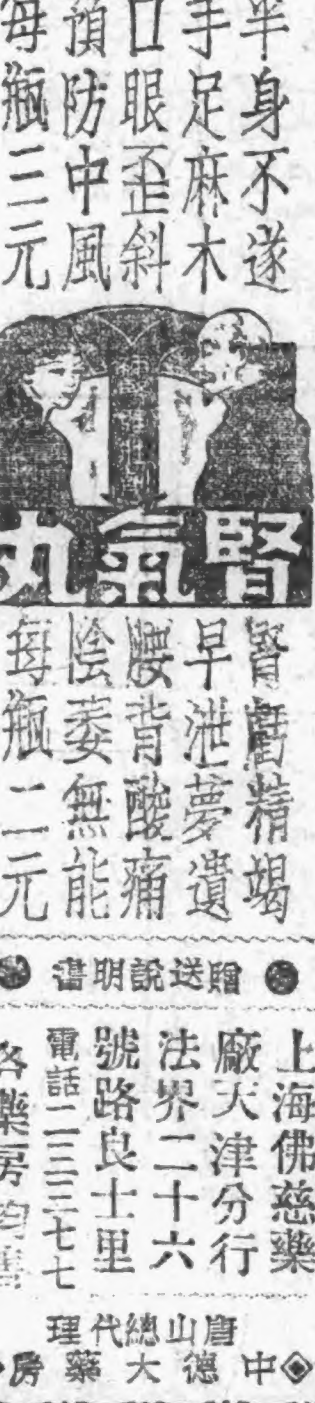 半身不遂
手足麻木
口眼歪斜
預防中風
每瓶三元
腎氣丸
腎虧精竭
早泄夢遺
腰背酸痛
陰萎無能
每瓶二元
贈送說明書
上海佛慈藥
廠天津分行
法界二十六
號路良士里
電話二三三七七
各藥房均售
唐山總代理
中德大藥房